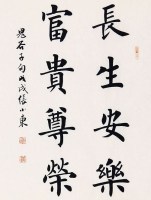 長生安樂
富貴尊榮
晁谷子句戊戌張小東